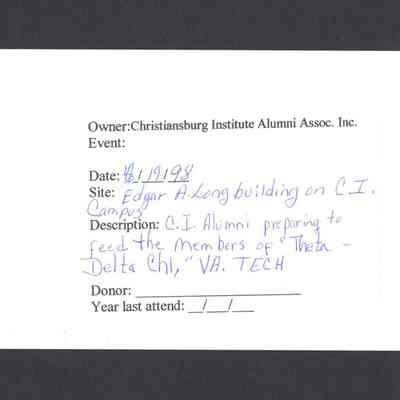 Owner:Christiansburg Institute Alumni Assoc. Inc.
Event:
Date: /19/98
Site: Edgar A. Long building on C.I.
Campus
Description: C.I. Alumni preparing to
feed the members of "Theta -
Delta Chi," VA. TECH
Donor: ____________________
Year last attend: __/___/___